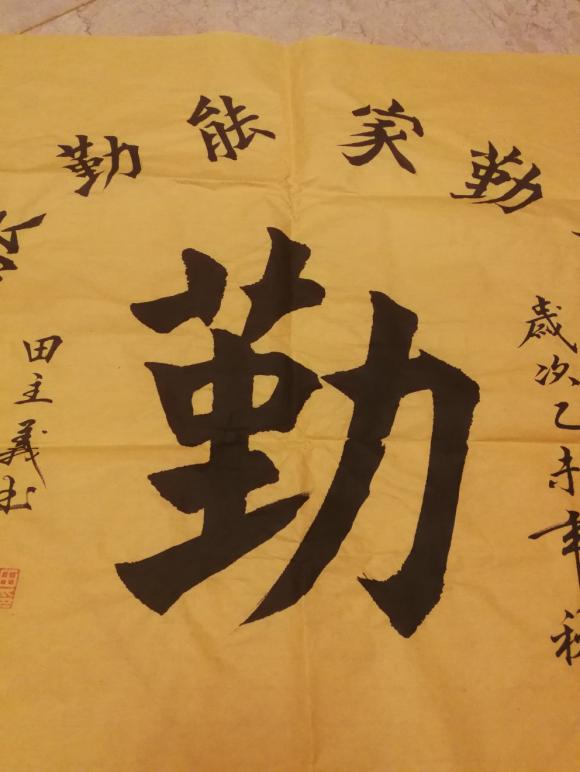 勤家能勤
勤
歲次乙未年秋
田主義书